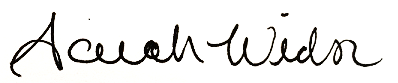 Sarah Widor